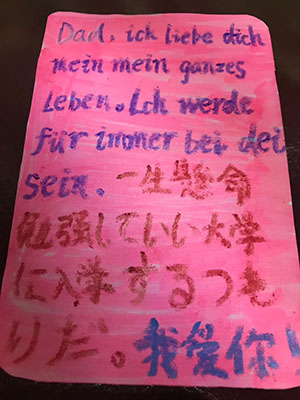 Dad, ich liebe dich
mein mein ganzes
Leben. Ich werde
für immer bei dei
sein. 一生懸命
勉強していい大学
に入学するつも
りだ。我爱你!